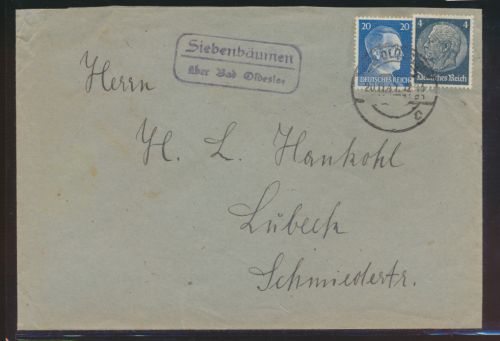 Siebenbäumen
über Bad Oldesloe
20 4
DEUTSCHES REICH Deutsches Reich
Herrn
H. L. Hankohl
Lübeck
Schmiedestr.